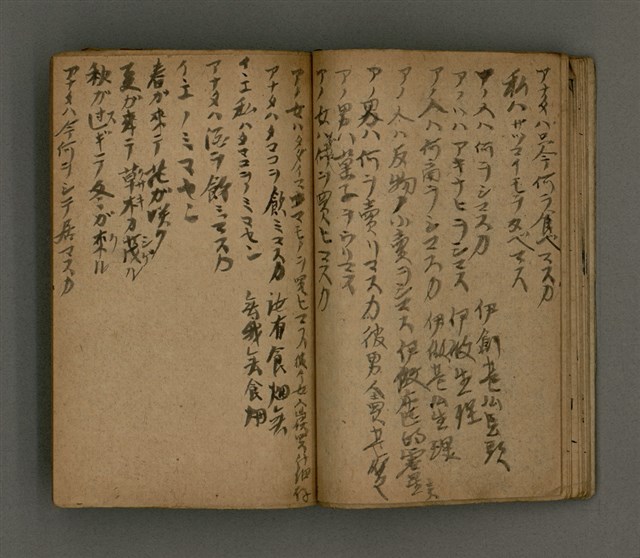 アナタハ只今何ヲ食ベマスカ
私ハサツマイモヲ食ベマス
アノ人ハ何ヲシマスカ 伊創甚么頭
アノ人ハアキナヒヲシマス 伊做生理
アノ人ハ何商ヲシマスカ 伊做甚么生理
アノ人ハ反物ノ小賣ヲシマス 伊做布的零賣
アノ男ハ何ヲ賣リマスカ 彼男人賣甚麼
アノ男ハ菓子ヲウリマス
アノ女ハ何ヲ買ヒマスカ
アノ女ハタダイマ モノヲ買ヒマス
アナタハタマコヲ飲ミマスカ 汝有食烟無
イエ私ハタマコヲノミマセン 無我無食烟
アナタハ酒ヲ飲ミマスカ
イエノミマセン
春ガ來テ花ガ咲ク
夏ガ來テ草木ガ茂ル
秋ガ過ギテ冬ガ來ル
アナタハ今何ヲシテ居マスカ